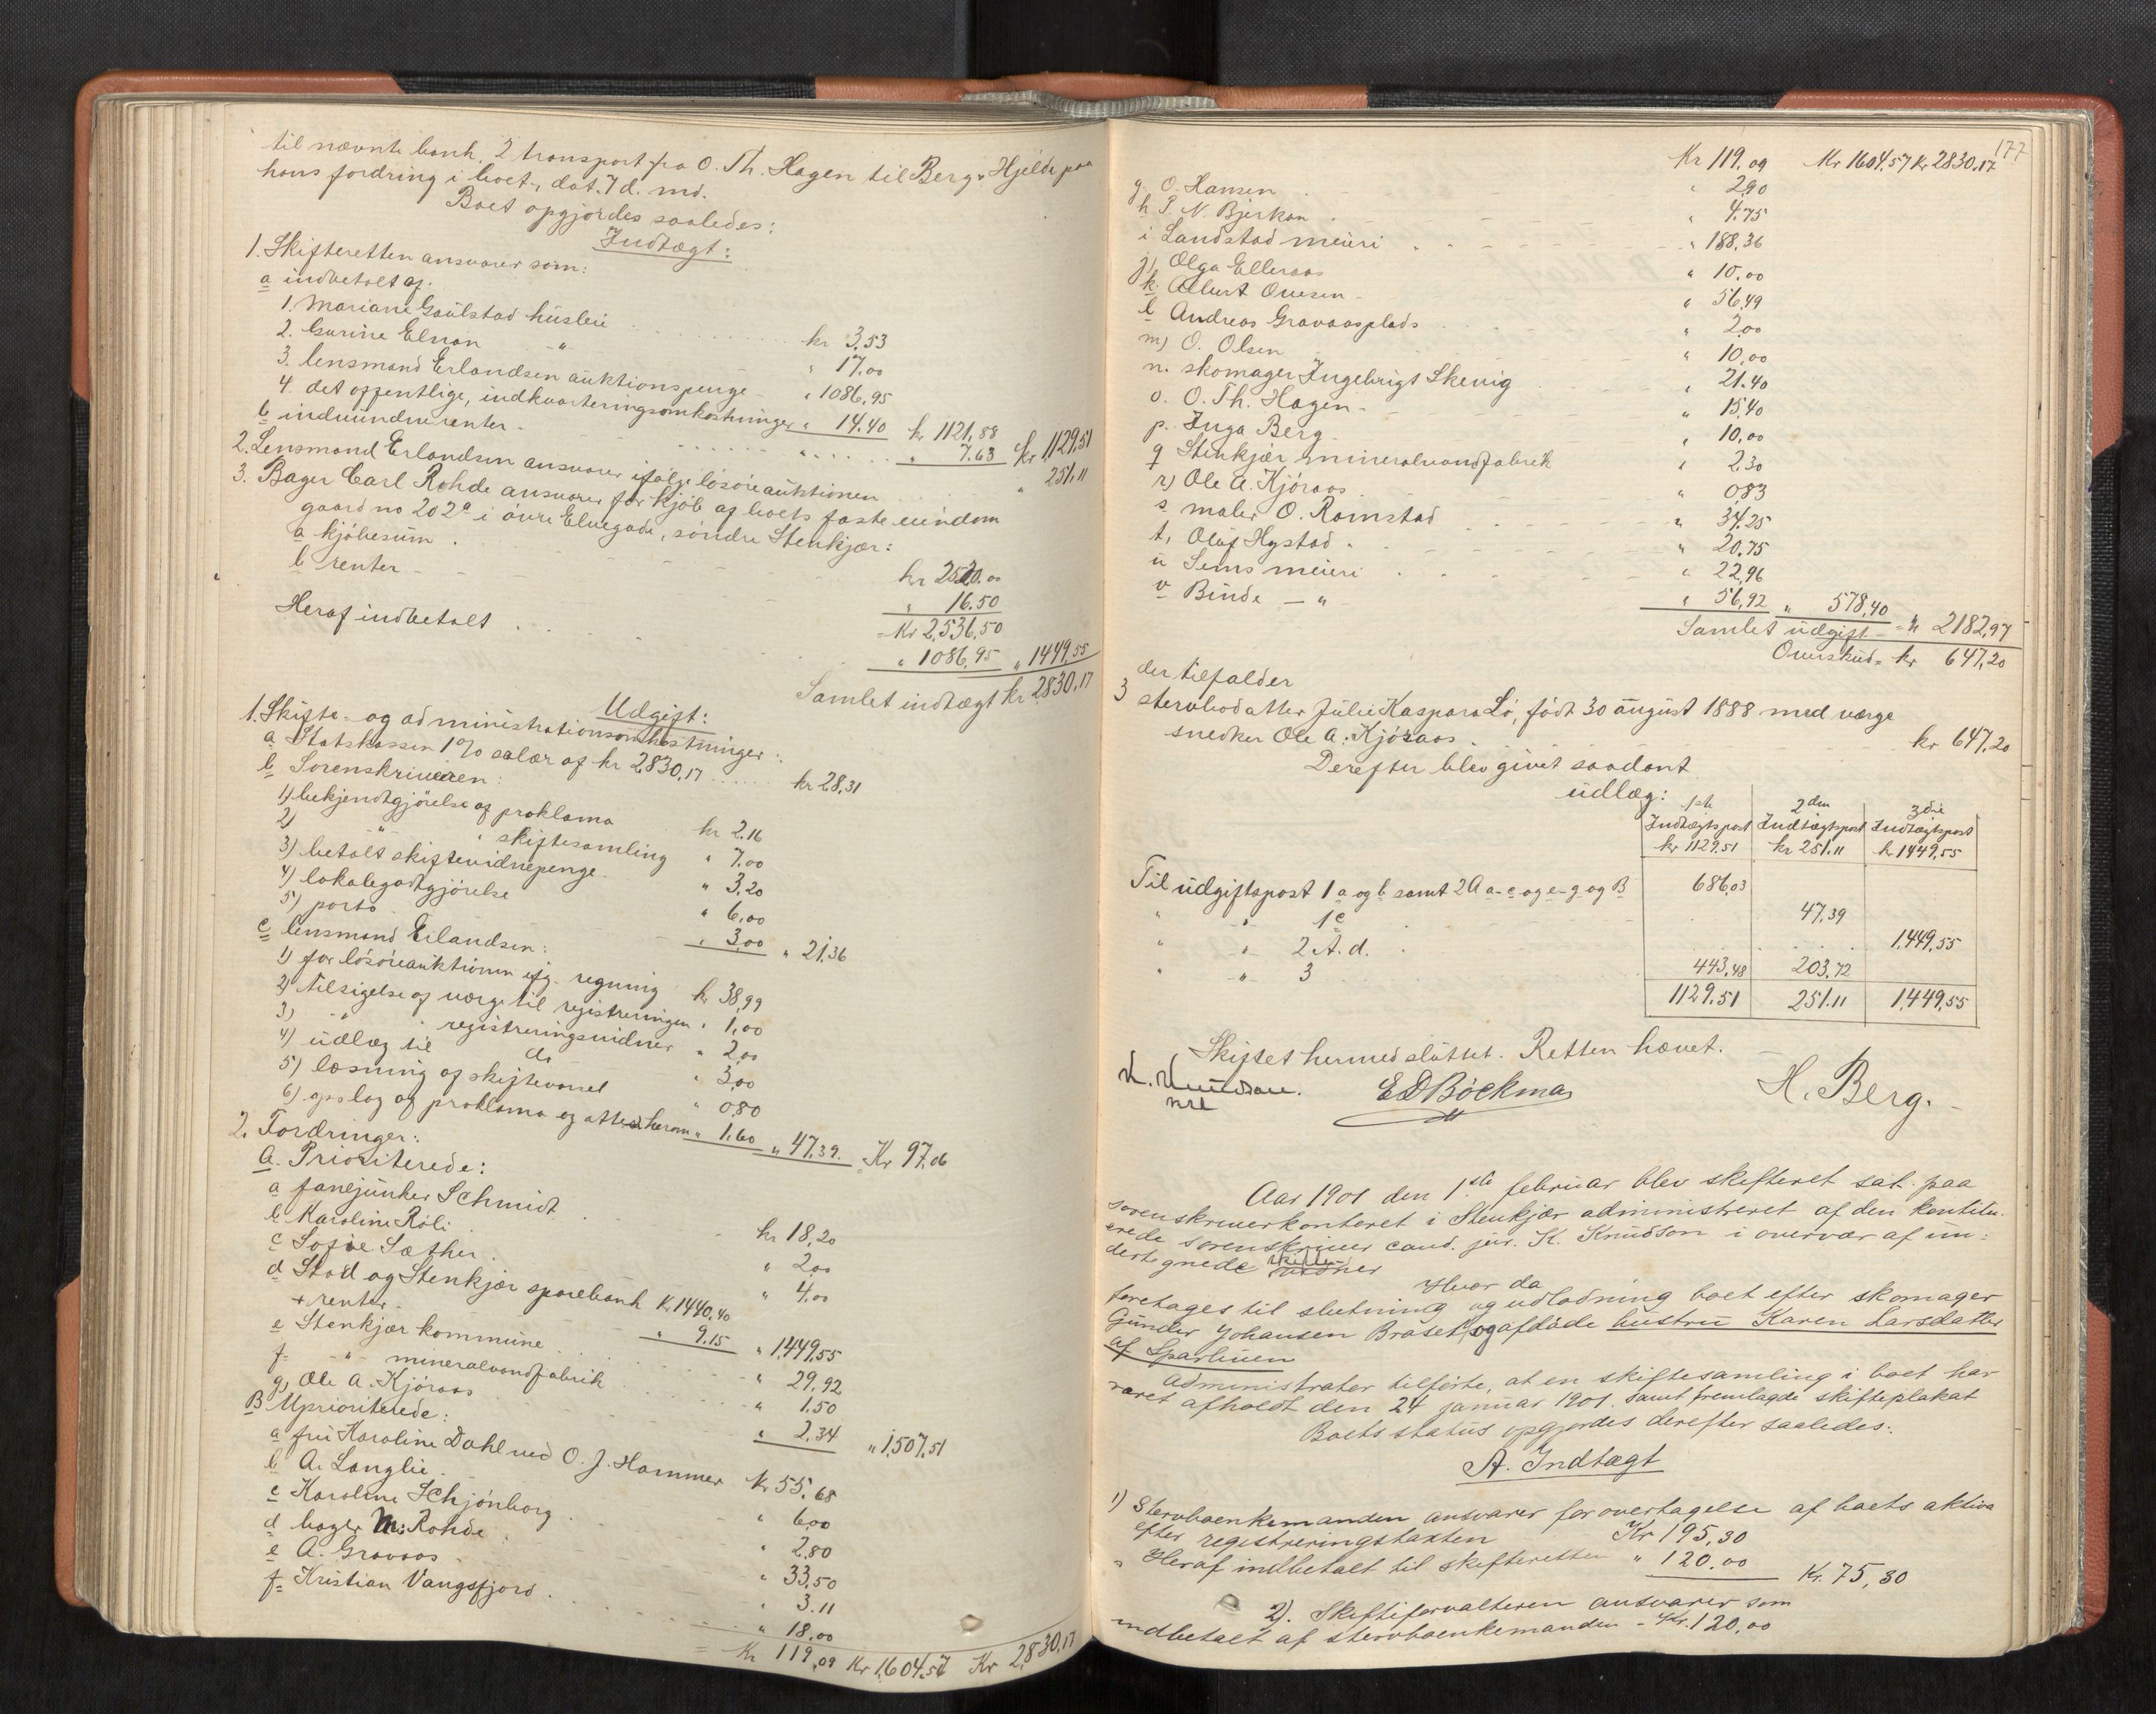 til nævnte bank, 2 transport fra O. Th. Hagen til Berg & Hjelde paa
hans fordring i boet, dat. 7 d. md.
Boet opgjordes saaledes:
Indtægt:
1. Skifteretten ansvarer som:
a indbetalt af:
1. Mariane Gaulstad husleie kr 3.53
2. Gurine Elnan " " 17.00
3. lensmand Erlandsen auktionspenge " 1086.95
4. det offentlige, indkvarteringsomkostninger " 14.40 kr 1121.88
b indvundne renter " 7.63 kr 1129.51
2. Lensmand Erlandsen ansvarer ifølge løsøreauktionen " 251.11
3. Bager Carl Rohde ansvarer for kjøb af boets faste eiendom
gaard no 202a i øvre Elvegade, søndre Stenkjær:
a kjøbesum kr 2520.00
b renter " 16.50
Kr 2,536,50
Heraf indbetalt " 1086,95 " 1449,55
Samlet indtægt kr 2830,17
Udgift:
1. Skifte- og administrationsomkostninger:
a Statskassen 1% salær af kr 2830,17 kr 28,31
b Sorenskriveren:
1) bekjendtgjørelse af proklama kr 2.16
2) " " skiftesamling " 7.00
3) betalt skiftevidnepenge " 3,20
4) lokalegodtgjørelse " 6,00
5) porto " 3,00 " 21,36
c lensmand Erlandsen:
1) for løsøreauktionen ifg. regning kr 38,99
2) tilsigelse af værge til registreringen " 1,00
3) " " registreringsvidner " 2,00
4) udlæg til do " 3,00
5) læsning af skiftevarsel " 0,80
6) opslag af proklama og attest herom " 1.60 " 47,39. Kr 97,06
2. Fordringer:
A. Prioriterede:
a fanejunker Schmidt kr 18,20
b Karoline Røli " 2,00
c Sofie Sæther " 4,00
d Stod og Stenkjær sparebank Kr 1440,40
+ renter " 9.15 " 1,449,55
e Stenkjær kommune " 29,92
f " mineralvandfabrik " 1.50
g) Ole A. Kjøraas " 2.34 " 1,507,51
B Uprioriterede:
a fru Karoline Dahl ved O. J. Hammer Kr 55.68
b A. Langlie " 6,00
c Karoline Schjønborg " 2,80
d bager M. Rohde " 33,50
e A. Gravaas " 3.11
f Kristian Vangsfjord " 18,00
Kr 119,09 Kr 1,604,57 Kr 2,830,17
177
Kr 119.09 Kr 1604,57 Kr 2830,17
g. O. Hansen " 2,90
h P. N. Bjerkan " 4.75
i Landstad meieri " 188,36
j) Olga Elleraas " 10.00
k. Albert Ovesen " 56,49
l Andreas Gravaasplads " 2,00
m) O. Olsen " 10,00
n. skomager Ingebrigt Skevig " 21.40
o. O. Th. Hagen " 15,40
p. Inga Berg " 10,00
q Stenkjær mineralvandfabrik " 2.30
r) Ole A. Kjøraas " 083
s maler O. Ramstad " 34,25
t, Oluf Hystad " 20,75
u Sems meieri " 22,96
v Binde - " " 56,92 " 578,40 " 2182,97
Samlet udgift
Overskud = kr 647,20
der tilfalder
3 stervbod atter Julie Kaspara Lø, født 30 august 1888 med værge
snedker Ole A. Kjøraas kr 647,20
Derefter blev givet saadant
udlæg:
1ste Indtægtspost kr 1129.51 2den Indtægtspost kr 251.11 3die Indtægtspost kr 1449,55
Til udgiftspost 1 a og b samt 2 A a-c og e-g og B 686,03
" " 1c 47.39
" " 2 A. d. 1,449,55
" " 3 443,48 203,72
1129.51 251.11 1,449,55
Skiftet hermed sluttet. Retten hævet.
K. Knudson. E D Bøckman H. Berg.
Aar 1901 den 1ste februar blev skifteret sat paa
sorenskriverkontoret i Stenkjær administreret af den konstitu-
erede sorenskriver cand. jur. K. Knudson i overvær af un-
dertegnede skiftevidner
Hvor da
foretages til slutning og udlodning boet efter skomager
Gunder Johansen Braset og afdøde hustru Karen Larsdatter
af Sparbuen
Administrator tilførte, at en skiftesamling i boet har
været afholdt den 24 januar 1901. samt fremlagde skifteplakat
Boets status opgjordes derefter saaledes:
A. Indtægt
1) Stervboenkemanden ansvarer for overtagelse af boets aktiva
efter registreringstaxten Kr 195,30
" Heraf indbetalt til skifteretten " 120.00 Kr. 75,30
2). Skifteforvalteren ansvarer som
indbetalt af stervboenkemanden - Kr. 120,00